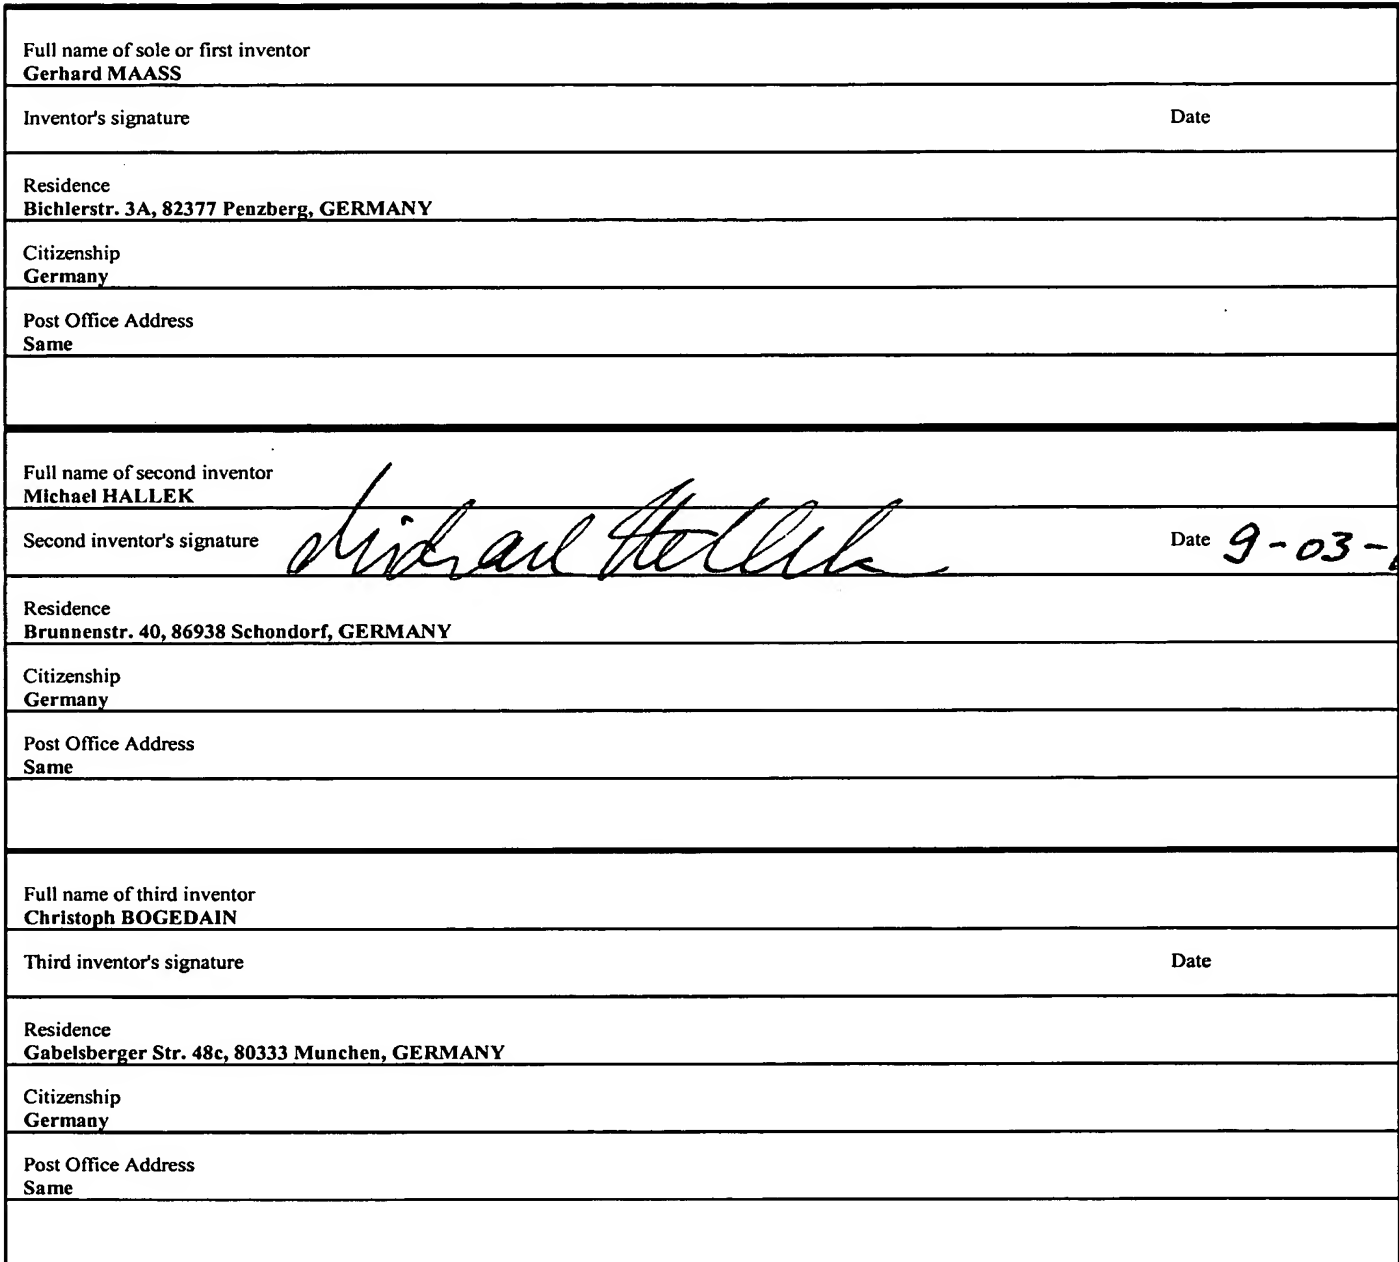 Full name of sole or first inventor
Gerhard MAASS
Inventor's signature Date
Residence
Bichlerstr. 3A, 82377 Penzberg, GERMANY
Citizenship
Germany
Post Office Address
Same
Full name of second inventor
Michael HALLEK
Second inventor's signature Michael Hallek Date 9-03-
Residence
Brunnenstr. 40, 86938 Schondorf, GERMANY
Citizenship
Germany
Post Office Address
Same
Full name of third inventor
Christoph BOGEDAIN
Third inventor's signature Date
Residence
Gabelsberger Str. 48c, 80333 Munchen, GERMANY
Citizenship
Germany
Post Office Address
Same